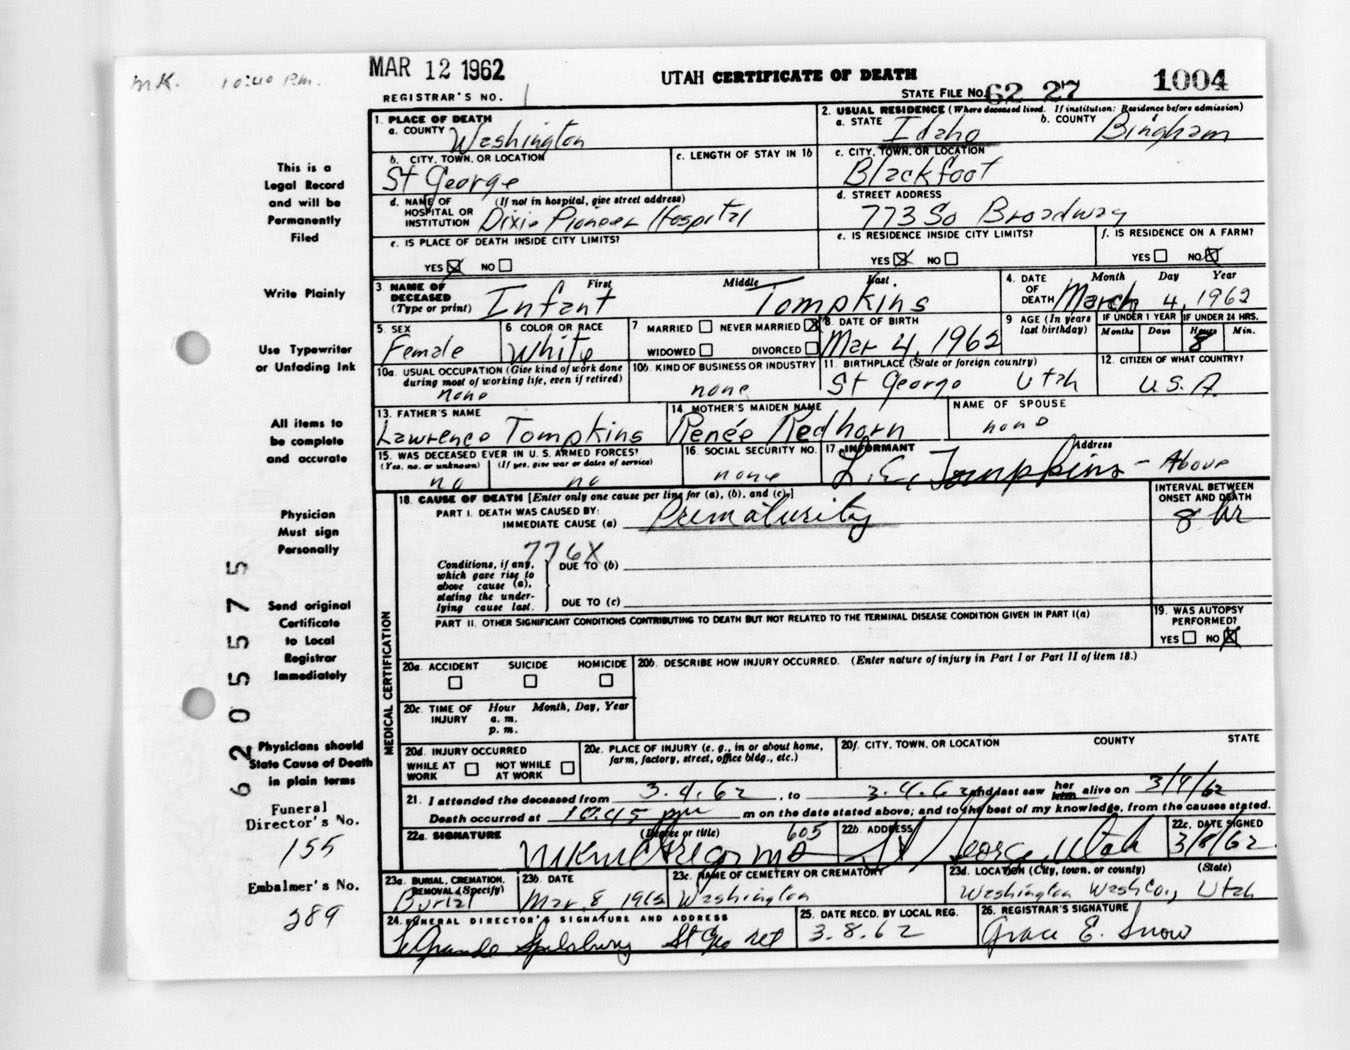 MK. 10:40 P.m.
MAR 12 1962
UTAH CERTIFICATE OF DEATH
1004
REGISTRAR'S NO. 1
STATE FILE NO. 62 27
1. PLACE OF DEATH
a. COUNTY Washington
2. USUAL RESIDENCE (Where deceased lived. If institution: Residence before admission)
a. STATE Idaho b. COUNTY Bingham
b. CITY, TOWN, OR LOCATION St George
c. LENGTH OF STAY IN 1b
c. CITY, TOWN, OR LOCATION Blackfoot
d. NAME OF HOSPITAL OR INSTITUTION (If not in hospital, give street address) Dixie Pioneer Hospital
d. STREET ADDRESS 773 So Broadway
e. IS PLACE OF DEATH INSIDE CITY LIMITS?
YES ☒ NO ☐
e. IS RESIDENCE INSIDE CITY LIMITS?
YES ☒ NO ☐
f. IS RESIDENCE ON A FARM?
YES ☐ NO ☒
3. NAME OF DECEASED (Type or print)
First Middle Last
Infant Tompkins
4. DATE OF DEATH Month Day Year
March 4, 1962
5. SEX Female
6 COLOR OR RACE White
7 MARRIED ☐ NEVER MARRIED ☒
WIDOWED ☐ DIVORCED ☐
8. DATE OF BIRTH Mar 4, 1962
9 AGE (In years last birthday)
IF UNDER 1 YEAR Months Days
IF UNDER 24 HRS. Hours Min.
8
10a. USUAL OCCUPATION (Give kind of work done during most of working life, even if retired)
none
10b. KIND OF BUSINESS OR INDUSTRY
none
11. BIRTHPLACE (State or foreign country)
St George Utah
12. CITIZEN OF WHAT COUNTRY?
U.S.A.
13. FATHER'S NAME
Lawrence Tompkins
14 MOTHER'S MAIDEN NAME
Renée Redhorn
NAME OF SPOUSE
none
15. WAS DECEASED EVER IN U. S. ARMED FORCES?
(Yes, no, or unknown) (If yes, give war or dates of service)
no no
16. SOCIAL SECURITY NO.
none
17. INFORMANT Address
L. E. Tompkins - Above
18. CAUSE OF DEATH [Enter only one cause per line for (a), (b), and (c).]
PART I. DEATH WAS CAUSED BY:
IMMEDIATE CAUSE (a) Prematurity
INTERVAL BETWEEN ONSET AND DEATH
8 hr
776X
Conditions, if any, which gave rise to above cause (a), stating the underlying cause last.
DUE TO (b)
DUE TO (c)
PART II. OTHER SIGNIFICANT CONDITIONS CONTRIBUTING TO DEATH BUT NOT RELATED TO THE TERMINAL DISEASE CONDITION GIVEN IN PART I(a)
19. WAS AUTOPSY PERFORMED?
YES ☐ NO ☒
MEDICAL CERTIFICATION
20a. ACCIDENT SUICIDE HOMICIDE
☐ ☐ ☐
20b. DESCRIBE HOW INJURY OCCURRED. (Enter nature of injury in Part I or Part II of item 18.)
20c. TIME OF INJURY Hour Month, Day, Year
a. m.
p. m.
20d. INJURY OCCURRED
WHILE AT WORK ☐ NOT WHILE AT WORK ☐
20e. PLACE OF INJURY (e. g., in or about home, farm, factory, street, office bldg., etc.)
20f. CITY, TOWN, OR LOCATION COUNTY STATE
21. I attended the deceased from 3.4.62, to 3.4.62 and last saw her him alive on 3/4/62
Death occurred at 10.45 pm m on the date stated above; and to the best of my knowledge, from the causes stated.
22a. SIGNATURE (Degree or title) 605
22b. ADDRESS St George, Utah
22c. DATE SIGNED 3/8/62
23a. BURIAL, CREMATION, REMOVAL (Specify)
Burial
23b. DATE
Mar 8 1962
23c. NAME OF CEMETERY OR CREMATORY
Washington
23d. LOCATION (City, town, or county) (State)
Washington Wash Co., Utah
24. FUNERAL DIRECTOR'S SIGNATURE AND ADDRESS
Spilsbury St Geo Ut
25. DATE RECD. BY LOCAL REG.
3.8.62
26. REGISTRAR'S SIGNATURE
Grace E. Snow
This is a
Legal Record
and will be
Permanently
Filed
Write Plainly
Use Typewriter
or Unfading Ink
All items to
be complete
and accurate
Physician
Must sign
Personally
Send original
Certificate
to Local
Registrar
Immediately
Physicians should
State Cause of Death
in plain terms
Funeral
Director's No.
155
Embalmer's No.
289
62 05575